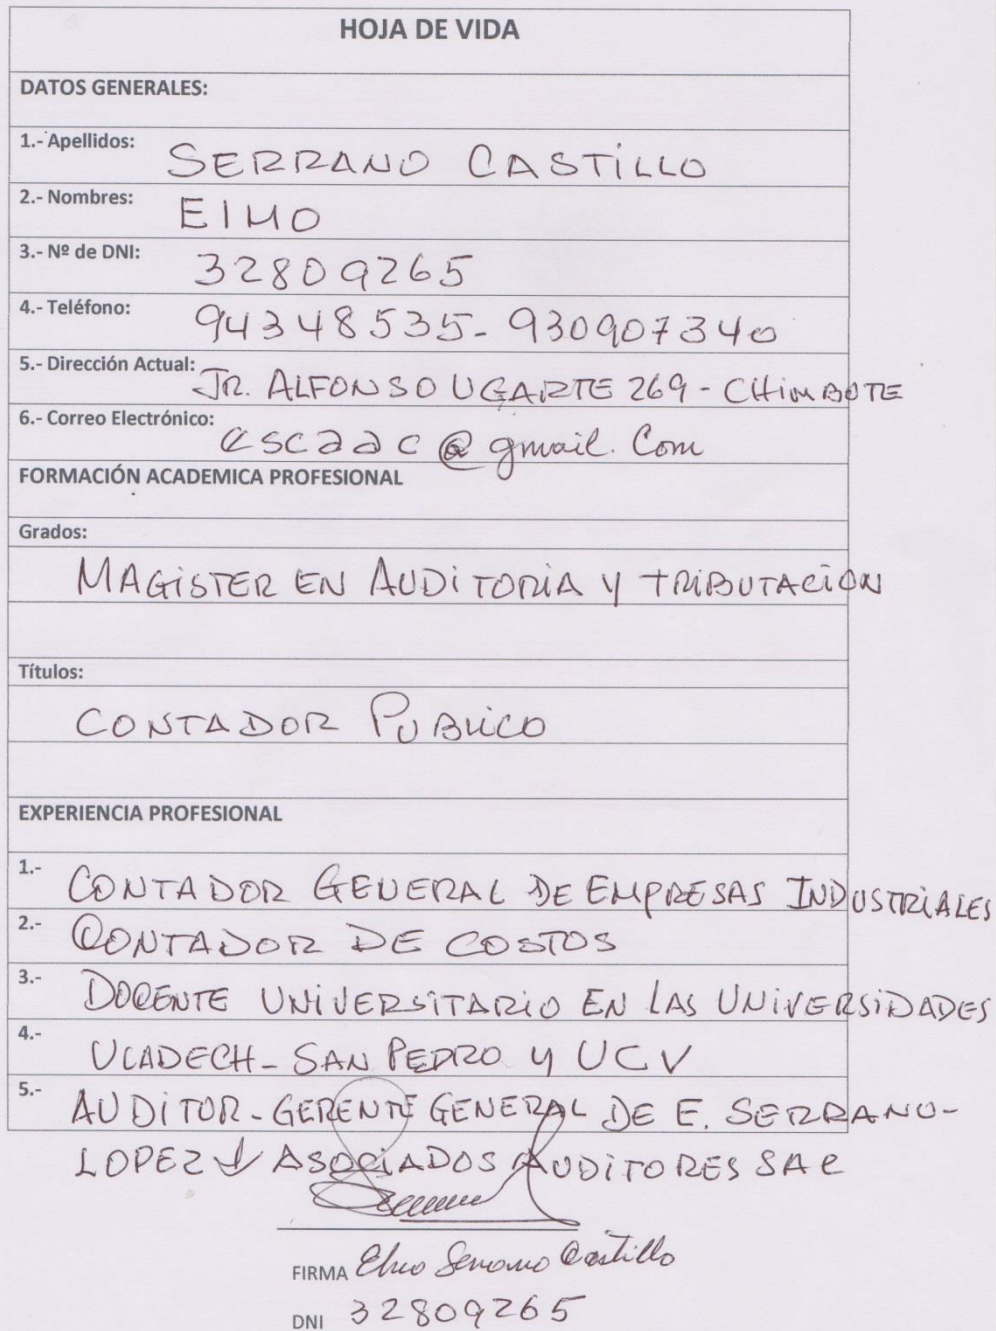 HOJA DE VIDA
DATOS GENERALES:
1.- Apellidos: SERRANO CASTILLO
2.- Nombres: ElMO
3.- Nº de DNI: 32809265
4.- Teléfono: 94348535- 930907340
5.- Dirección Actual: JR. ALFONSO UGARTE 269 - CHIMBOTE
6.- Correo Electrónico: escaac@gmail.Com
FORMACIÓN ACADEMICA PROFESIONAL
Grados:
MAGISTER EN AUDITORIA Y TRIBUTACIÓN
Títulos:
CONTADOR PUBLICO
EXPERIENCIA PROFESIONAL
1.- CONTADOR GENERAL DE EMPRESAS INDUSTRIALES
2.- CONTADOR DE COSTOS
3.- DOCENTE UNIVERSITARIO EN LAS UNIVERSIDADES
4.- ULADECH- SAN PEDRO Y UCV
5.- AUDITOR - GERENTE GENERAL DE E. SERRANO-
LOPEZ Y ASOCIADOS AUDITORES SAC
FIRMA Elmo Serrano Castillo
DNI 32809265